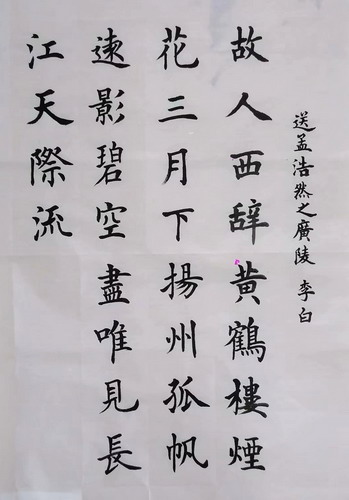 送孟浩然之廣陵 李白
故人西辞黃鶴樓煙
花三月下揚州孤帆
遠影碧空盡唯見長
江天際流